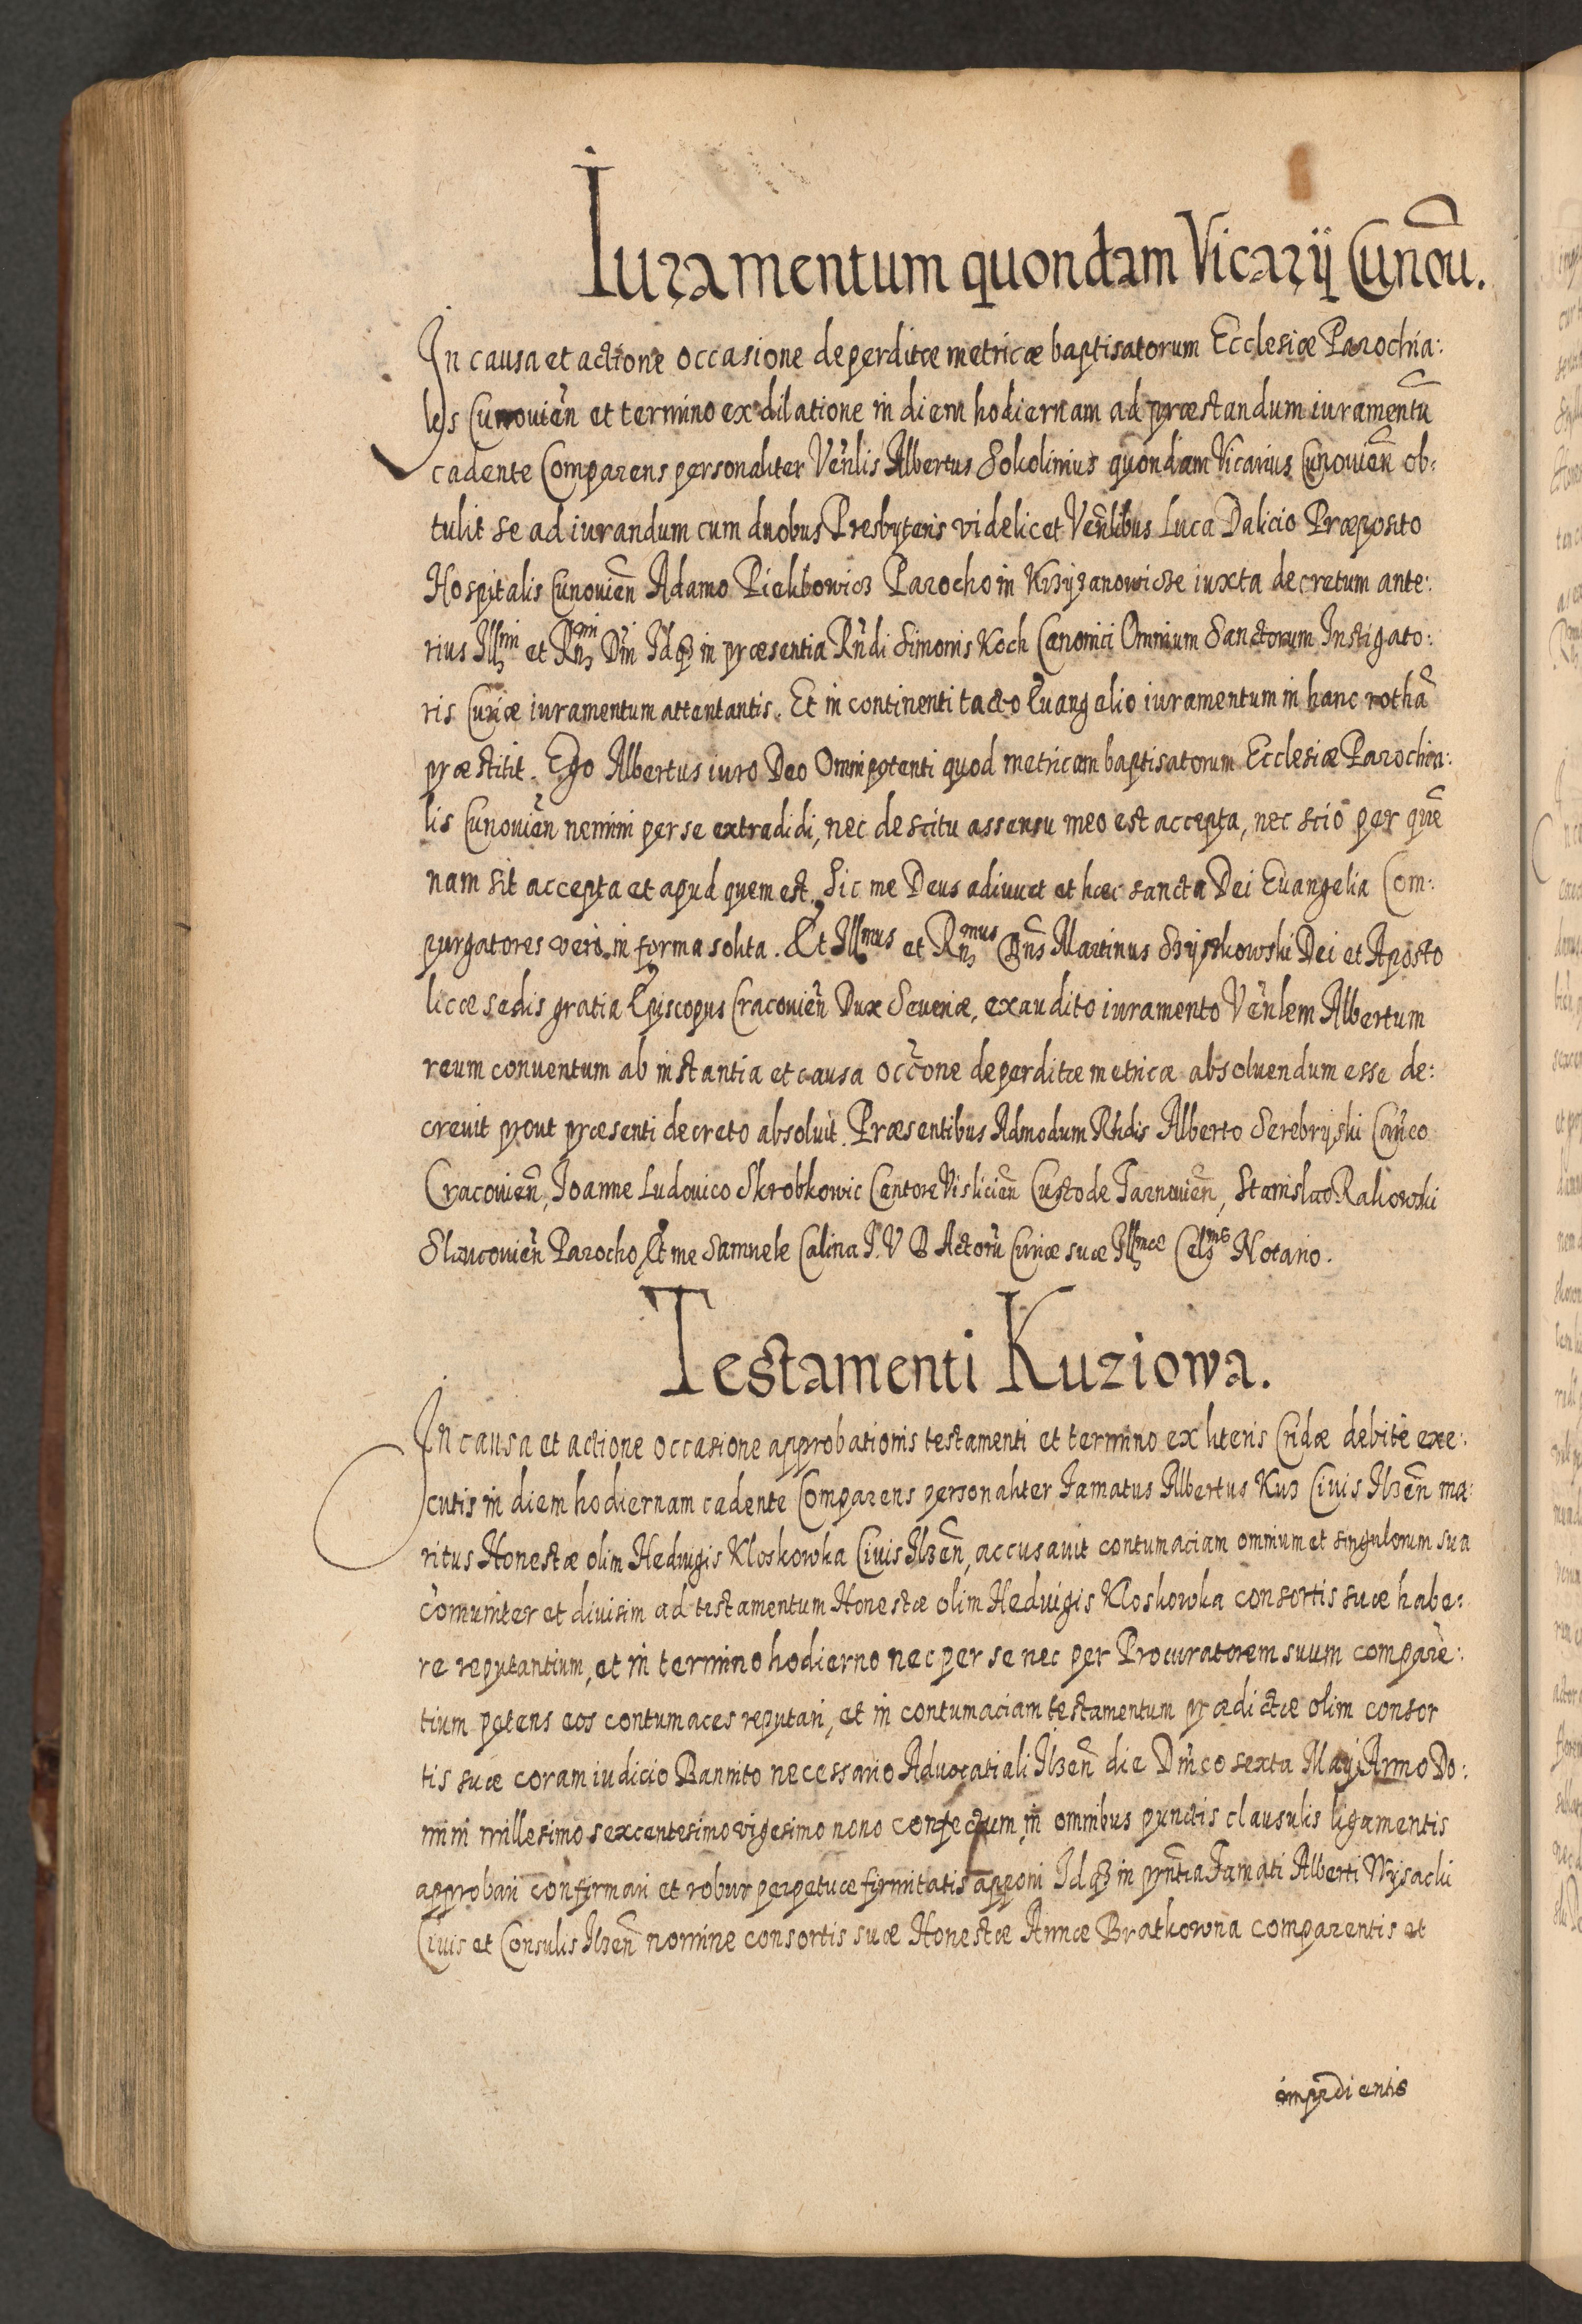 Iuramentum quondam Vicarij Cunou̅.
In causa et actione occasione deperditæ metricæ baptisatorum Ecclesiæ Parochia:
lis Cunouien̅ et termino ex dilatione in diem hodiernam ad præstandum iuramentu̅
cadente Comparens personaliter Ven̅lis Albertus Sokolinius quondam Vicarius Cunouien̅ ob:
tulit se ad iurandum cum duobus Presbyteris videlicet Ven̅libus Luca Dalicio Præposito
Hospitalis Cunouien̅ Adamo Piekbowicz Parocho in Krzyżanowicze iuxta decretum ante:
rius Illmi et Rn̅mi Dn̅i Idqz in præsentia Rn̅di Simonis Koch Canonici Omnium Sanctorum Instigato:
ris Curiæ iuramentum attentantis. Et in continenti tacto Euangelio iuramentum in hanc rotha̅
præstitit. Ego Albertus iuro Deo Omnipotenti quod metricam baptisatorum Ecclesiæ Parochia:
lis Cunouien̅ nemini per se extradidi, nec de scitu assensu meo est accepta, nec scio per que̅
nam sit accepta et apud quem est. Sic me Deus adiuuet et hæc sancta Dei Euangelia Com:
purgatores vero in forma solita. Et Illmus et Rn̅mus Dn̅s Martinus Szyszkowski Dei et Aposto
licæ sedis gratia Episcopus Cracouien̅ Dux Seueriæ, exaudito iuramento Ven̅lem Albertum
reum conuentum ab instantia et causa occ̅one deperditæ metricæ absoluendum esse de:
creuit prout præsenti decreto absoluit. Præsentibus Admodum Rn̅dis Alberto Serebryski Can̅co
Cracouien̅, Joanne Ludouico Skrobkowic Cantore Vislicien̅ Custode Tarnouien̅, Stanislao Rakowski
Slaucouien̅ Parocho, Et me Samuele Calina I. V D Actoru̅ Curiæ suæ Illmæ Celsmæ Notario.
Testamenti Kuziowa.
In causa et actione occasione approbationis testamenti et termino ex literis Cridæ debitè exe:
cutis in diem hodiernam cadente Comparens personaliter Famatus Albertus Kuz Ciuis Ilzen̅ ma:
ritus Honestæ olim Hedwigis Kloskowka Ciuis Ilzen̅, accusauit contumaciam omnium et singulorum sua
com̅uniter et diuisim ad testamentum Honestæ olim Hedwigis Kloskowka consortis suæ habe:
re reputantium, et in termino hodierno nec per se nec per Procuratorem suum compare̅:
tium petens eos contumaces reputari, et in contumaciam testamentum prædictæ olim consor
tis suæ coram iudicio Bannito necessario Aduocatiali Ilzen̅ die Dn̅ico sexta Maij Anno Do:
mini millesimo sexcentesimo vigesimo nono confectum, in omnibus punctis clausulis ligamentis
approbari confirmari et robur perpetuæ firmitatis apponi Idqz in pn̅tia Famati Alberti Wysacki
Ciuis et Consulis Ilzen̅ nomine consortis suæ Honestæ Annæ Bratkowna comparentis et
impedientis